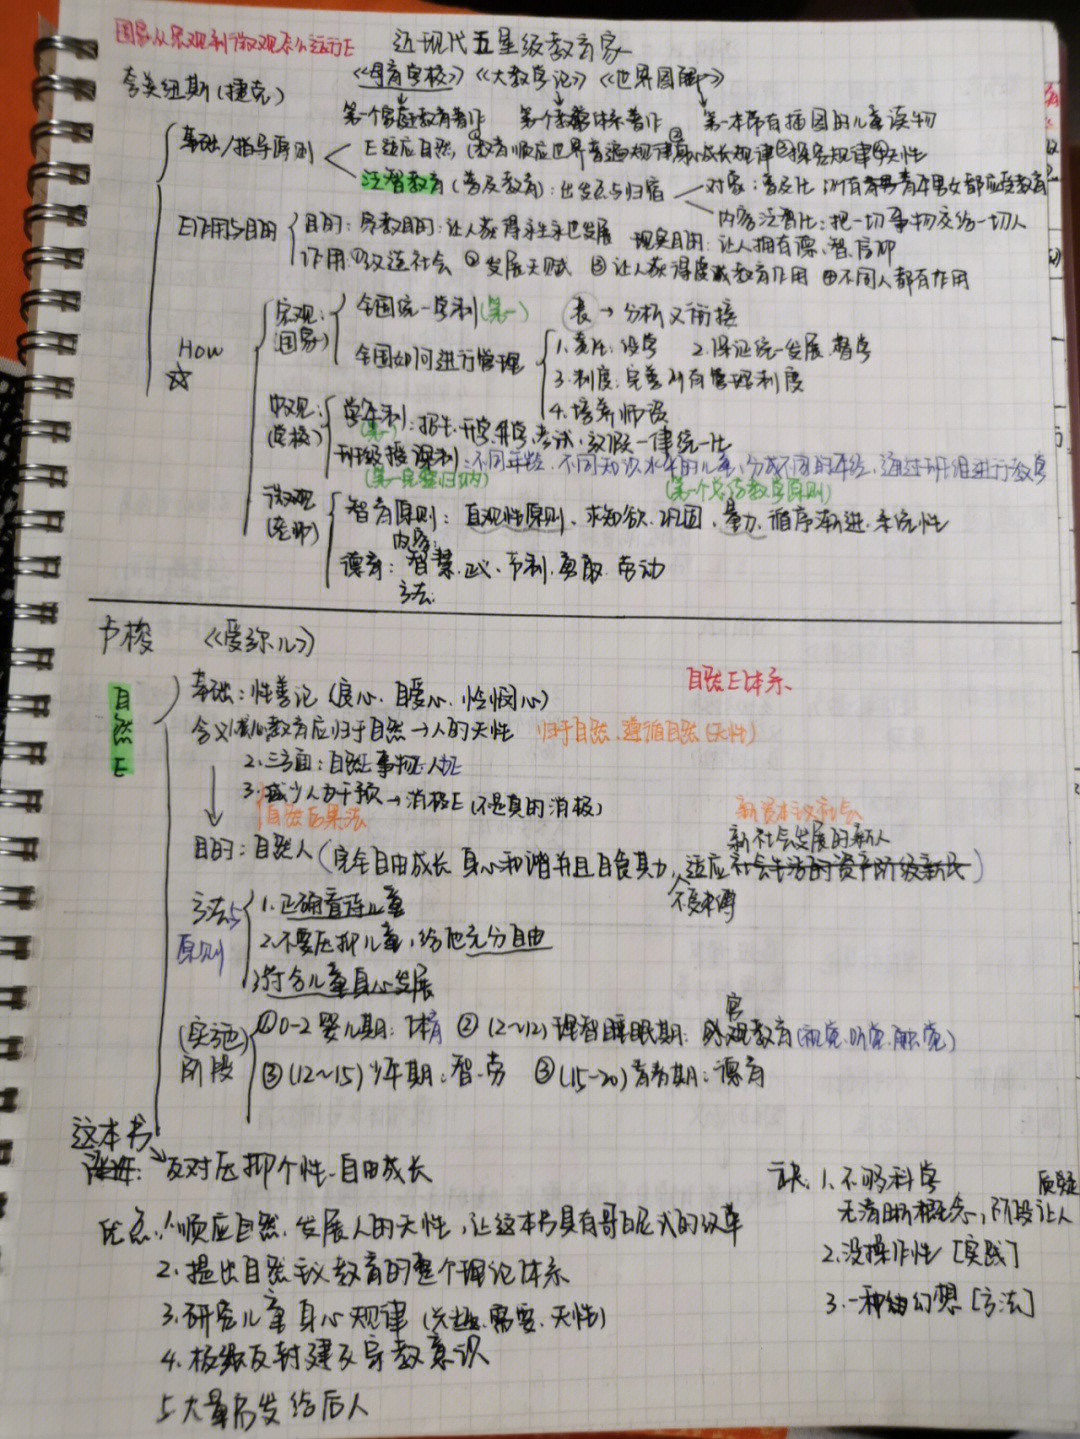 国家从宏观到微观怎么运行E
近现代五星级教育家
夸美纽斯(捷克)
《母育学校》《大教学论》《世界图解》
第一个家庭教育著作 第一个教学体系著作 第一本带有插图的儿童读物
基础/指导原则
E适应自然,教育顺应世界普遍规律 成长规律 探究规律 天性
泛智教育(普及教育):出发点与归宿
对象:普及化 所有青年男女都应受教育
内容泛智化:把一切事物交给一切人
E作用与目的
目的:宗教目的:让人获得永生来世发展 现实目的:让人拥有德、智、信仰
作用:①改造社会 ②发展天赋 ③让人获得度诚教育作用 ④不同人都有作用
How
宏观:(国家)
全国统一学制(第一)
表→分析又衔接
全国如何进行管理
1.责任:设学 2.保证统一发展.督学
3.制度:完善所有管理制度
4.培养师资
中观:(学校)
学年制:招生.开学.升学.考试.放假一律统一化
(第一)
班级授课制:不同年龄、不同知识水平的儿童,分成不同的年级,通过班组进行教学
(第一完整归纳)
(第一个总结教学原则)
微观(老师)
智育原则:直观性原则、求知欲.巩固、量力.循序渐进.系统性
内容:
德育:智慧.正义.节制.勇敢.劳动
方法:
卢梭 《爱弥儿》
自然E体系
自然E
基础:性善论(良心、自爱心、怜悯心)
含义 教育应归于自然→人的天性 归于自然、遵循自然(天性)
2.三方面:自然E 事物E 人为E
3.减少人为干预→消极E(不是真的消极)
自然后果法
新资本主义社会
新社会发展的新人
目的:自然人(完全自由成长 身心和谐并且自食其力,适应社会生活的资产阶级新民)
不受束缚
方法与原则
1.正确看待儿童
2.不要压抑儿童,给他充分自由
3.符合儿童身心发展
(实施)阶段
①0-2 婴儿期:体育 ②(2~12)理智睡眠期:感官教育(视觉.听觉.触觉)
③(12~15)少年期:智.劳 ③(15-20)青春期:德育
这本书
反对压抑个性.自由成长
优点:1.顺应自然.发展人的天性,让这本书具有哥白尼式的改革
2.提出自然主义教育的整个理论体系
3.研究儿童身心规律(兴趣.需要.天性)
4.极端反封建反宗教意识
5.大量启发给后人
缺.1.不够科学
无清晰概念,阶段让人质疑
2.没操作性[实践]
3.一种幻想[方法]